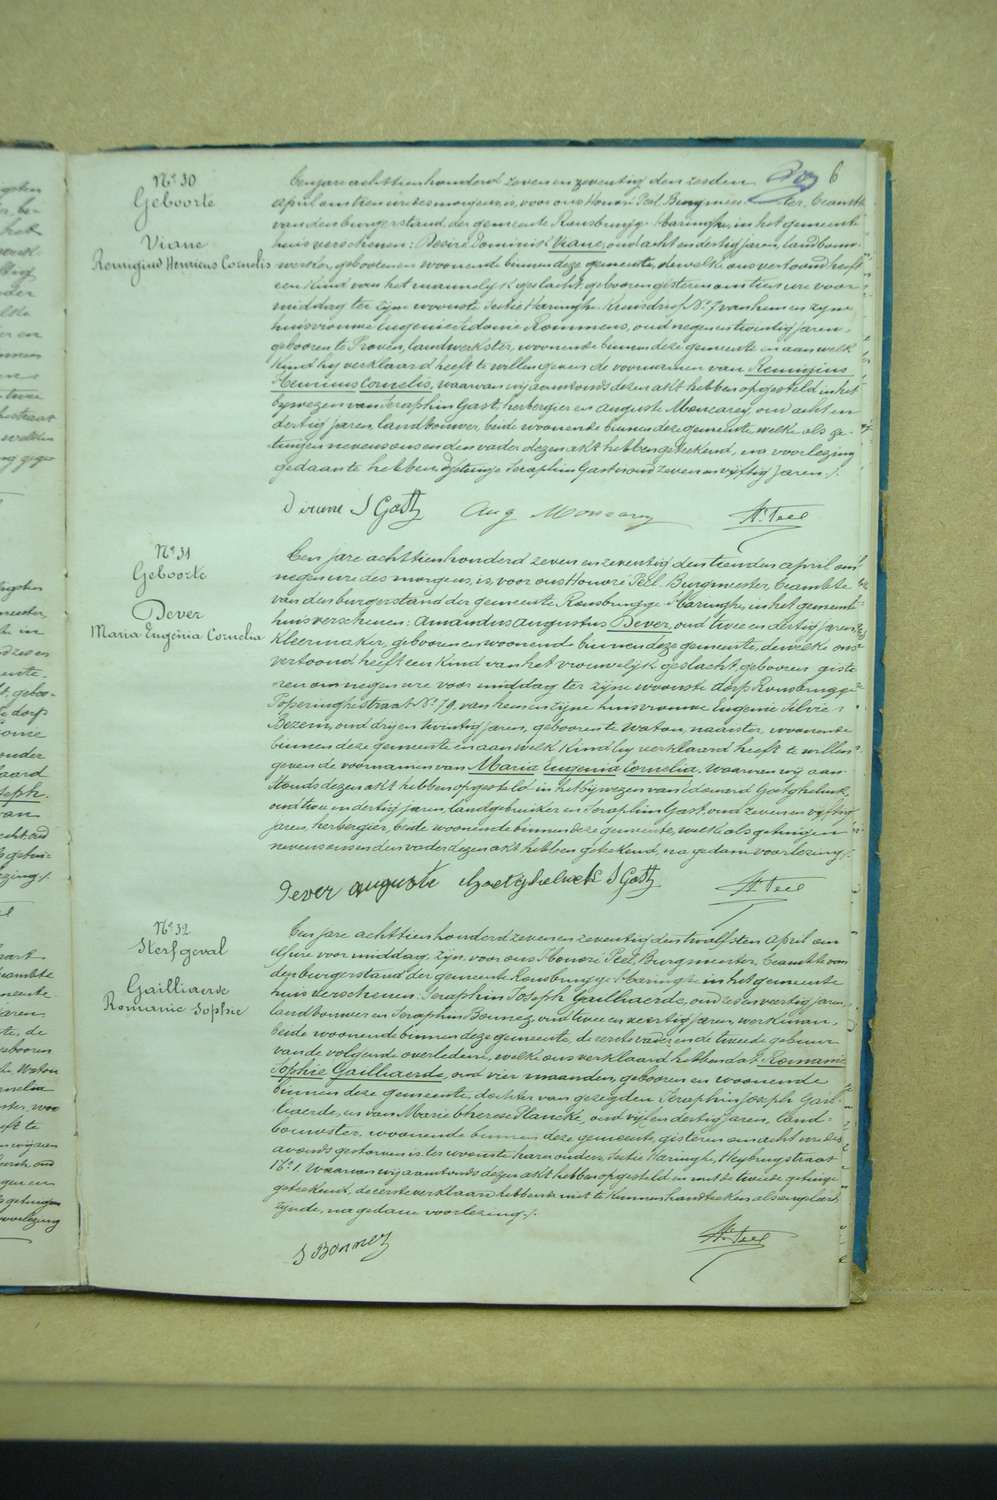 6
Nº 30
Geboorte
Viane
Remigius Henricus Cornelis
Een jare achttienhonderd zeven en zeventig den zesden
april om tien ure des morgens, is, voor ons Honoré Peel Burgmeester, beambte
van den burgerstand der gemeente Rousbrugge-Haringhe, in het gemeente
huis verschenen: Desiré Dominik Viane, oud acht en dertig jaren, landbouw
werker, geboren en woonende binnen deze gemeente, dewelke ons vertoond heeft
een kind van het mannelijk geslacht, geboren gisteren om ure voor
middag ter zijne woonste Sectie Haringhe Kruisdorp Nº 7 van hem en zijne
huisvrouwe Eugenie Sidonie Rommens, oud negen en twintig jaren,
geboren te Proven, landwerkster, woonende binnen deze gemeente en aan welk
kind hij verklaard heeft te willen geven de voornamen van Remigius
Henricus Cornelis, waarvan wij aanstonds dezen akt hebben opgesteld in het
bijwezen van Seraphin Gast, herbergier en Auguste Moncarey oud acht en
dertig jaren, landbouwer, beide woonende binnen deze gemeente welke als ge-
tuigen nevens ons en den vader dezen akt hebben geteekend, na voorlezing
gedaan te hebben, getuige Seraphin Gast is oud zeven en vijftig jaren./.
D viane S Gast Aug Moncarey H. Peel
Nº 31
Geboorte
Dever
Maria Eugénia Cornelia
Een jare achttienhonderd zeven en zeventig den tienden april om
negen ure des morgens, is, voor ons Honoré Peel Burgmeester, beambte
van den burgerstand der gemeente Rousbrugge-Haringhe, in het gemeente
huis verschenen: Amandus Augustus Dever, oud twee en dertig jaren,
kleermaker, geboren en woonende binnen deze gemeente, dewelke ons
vertoond heeft een kind van het vrouwelijk geslacht, geboren giste
ren om negen ure voor middag ter zijne woonste dorp Rousbrugge
Poperinghestraat Nº 79, van hem en zijne huisvrouwe Eugenie Silvie
Bezem, oud drij en twintig jaren, geboren te Watou, naaister, woonende
binnen deze gemeente en aan welk kind hij verklaard heeft te willen
geven de voornamen van Maria Eugenia Cornelia. Waarvan wij aan-
stonds dezen akt hebben opgesteld in het bijwezen van Edouard Goetghelück,
oud twee en dertig jaren, landgebruiker en Seraphin Gast oud zeven en vijftig
jaren, herbergier, beide woonende binnen deze gemeente, welke als getuigen
nevens ons en den vader dezen akt hebben geteekend, na gedane voorlezing./.
Dever auguste Goetghelueck S Gast H. Peel
Nº 32
Sterfgeval
Gailliaerde
Romanie Sophie
Een jare achttienhonderd zeven en zeventig den twalfsten april om
elf ure voor middag, zijn, voor ons Honoré Peel, Burgmeester, beambte van
den burgerstand der gemeente Rousbrugge-Haringhe in het gemeente
huis verschenen: Seraphin Joseph Gailliaerde, oud zes en veertig jaren,
landbouwer en Seraphin Bonnez, oud twee en veertig jaren, werkman,
beide woonende binnen deze gemeente, de eerste vader en de tweede gebuur
van de volgende overledene, welke ons verklaard hebben dat Romanie
Sophie Gailliaerde, oud vier maanden, geboren en woonende
binnen deze gemeente, dochter van gezegden Seraphin Joseph Gail-
liaerde, en van Marie Therese Plancke, oud vijf en dertig jaren, land-
bouwster, woonende binnen deze gemeente, gisteren om acht ure des
avonds gestorven is, ter woonste harer ouders, Sectie Haringhe, Heybrugstraat
Nº 1. Waarvan wij aanstonds dezen akt hebben opgesteld en met de tweede getuige
geteekend, de eerste verklaard hebbende niet te kunnen handteeken als
zijnde, na gedane voorlezing./.
S Bonnez H. Peel